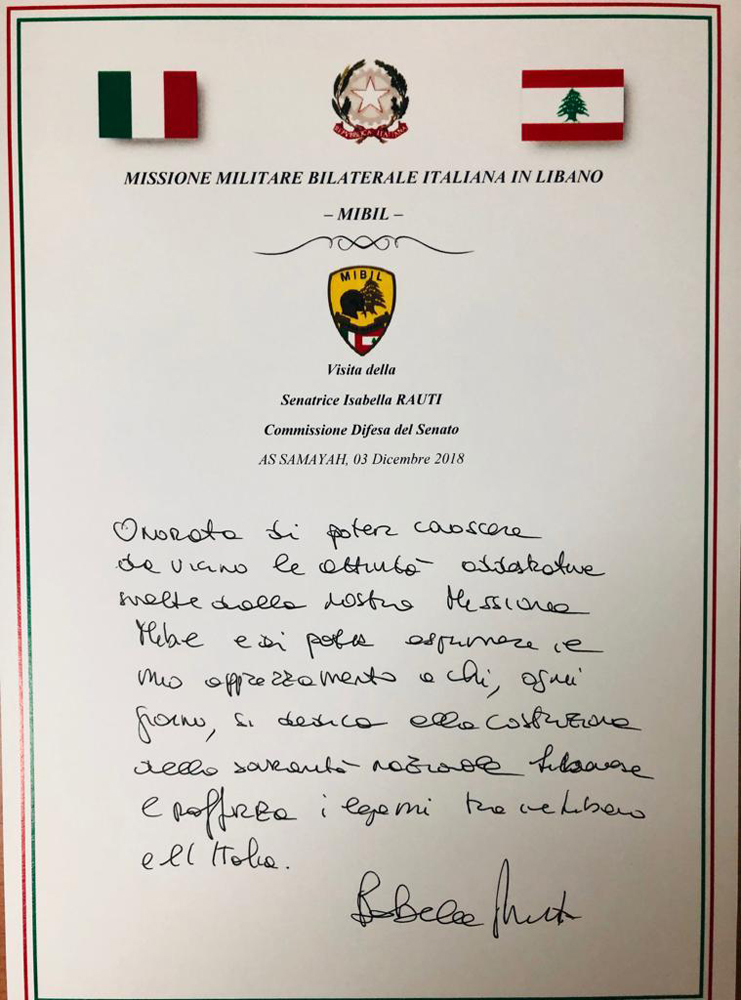 REPVBBLICA ITALIANA
MISSIONE MILITARE BILATERALE ITALIANA IN LIBANO
– MIBIL –
MIBIL
Visita della
Senatrice Isabella RAUTI
Commissione Difesa del Senato
AS SAMAYAH, 03 Dicembre 2018
Onorata di poter conoscere
da vicino le attività addestrative
svolte dalla nostra Missione
e di poter esprimere il
mio apprezzamento a chi, ogni
giorno, si dedica alla costruzione
della sovranità nazionale libanese
e rafforza i legami tra il Libano
e l'Italia.
Isabella Rauti